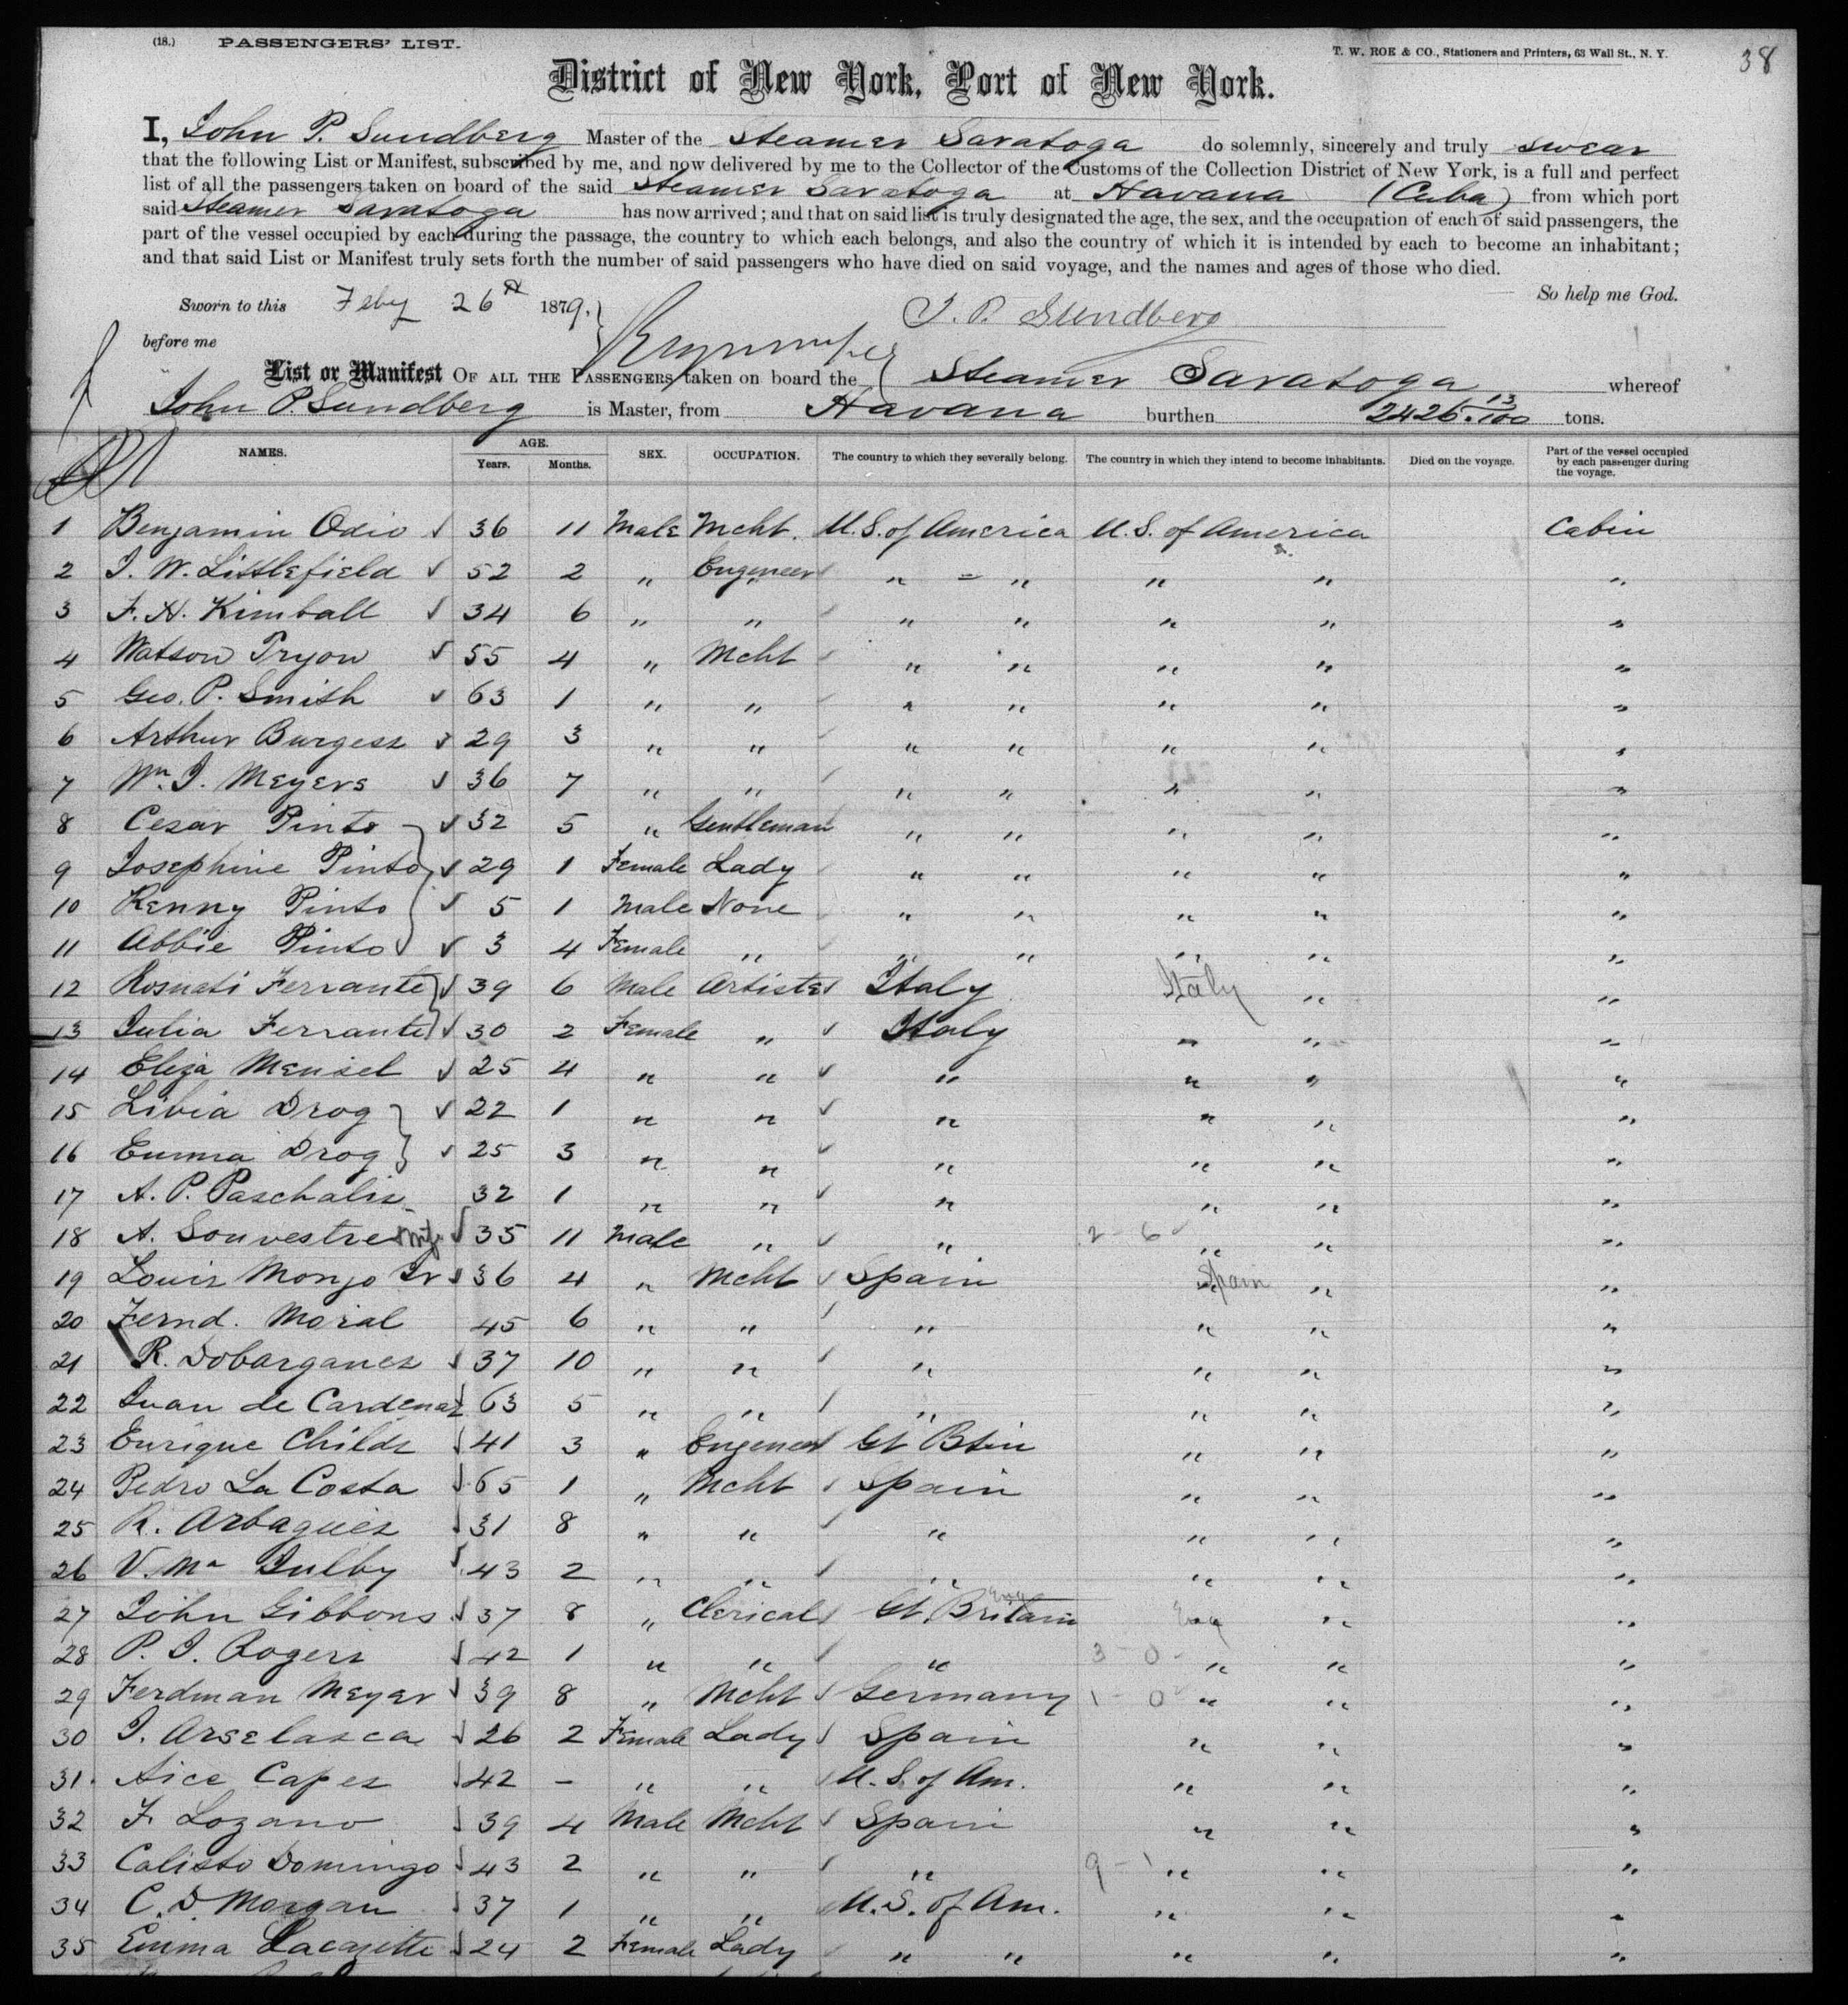 (18.) PASSENGERS' LIST.
T. W. ROE & CO., Stationers and Printers, 63 Wall St., N. Y.
38
District of New York, Port of New York.
I, John P. Sundberg Master of the Steamer Saratoga do solemnly, sincerely and truly swear
that the following List or Manifest, subscribed by me, and now delivered by me to the Collector of the Customs of the Collection District of New York, is a full and perfect
list of all the passengers taken on board of the said Steamer Saratoga at Havana (Cuba) from which port
said Steamer Saratoga has now arrived; and that on said list is truly designated the age, the sex, and the occupation of each of said passengers, the
part of the vessel occupied by each during the passage, the country to which each belongs, and also the country of which it is intended by each to become an inhabitant;
and that said List or Manifest truly sets forth the number of said passengers who have died on said voyage, and the names and ages of those who died.
So help me God.
Sworn to this Feby 26th 1879,
J. P. Sundberg
before me
List or Manifest OF ALL THE PASSENGERS taken on board the Steamer Saratoga whereof
John P. Sundberg is Master, from Havana burthen 2426 13/100 tons.
NAMES. AGE. Years. Months. SEX. OCCUPATION. The country to which they severally belong. The country in which they intend to become inhabitants. Died on the voyage. Part of the vessel occupied by each passenger during the voyage.
1 Benjamin Odio 36 11 Male Mcht. U.S. of America U.S. of America Cabin
2 J. W. Littlefield 52 2 " Engineer " " " " "
3 F. H. Kimball 34 6 " " " " " " "
4 Watson Pryon 55 4 " Mcht " " " " "
5 Geo. P. Smith 63 1 " " " " " " "
6 Arthur Burgess 29 3 " " " " " " "
7 Wm. J. Meyers 36 7 " " " " " " "
8 Cesar Pinto 32 5 " Gentleman " " " " "
9 Josephine Pinto 29 1 Female Lady " " " " "
10 Kenny Pinto 5 1 Male None " " " " "
11 Abbie Pinto 3 4 Female " " " " " "
12 Rosnati Ferrante 39 6 Male Artiste Italy Italy " "
13 Julia Ferrante 30 2 Female " Italy " " "
14 Eliza Mensel 25 4 " " " " " "
15 Libia Drog 22 1 " " " " " "
16 Emma Drog 25 3 " " " " " "
17 A. P. Paschalis 32 1 " " " " " "
18 A. Souvestre 35 11 Male " " 2 - 6 " " "
19 Louis Monjo Jr 36 4 " Mcht Spain Spain " " "
20 Fernd. Moral 45 6 " " " " " "
21 R. Dobarganes 37 10 " " " " " "
22 Juan de Cardenas 63 5 " " " " " "
23 Enrique Childs 41 3 " Engeneer Gt Btin " " "
24 Pedro La Costa 65 1 " Mcht Spain " " "
25 R. Arbagues 31 8 " " " " " "
26 V. Ma Julby 43 2 " " " " " "
27 John Gibbons 37 8 " Clerical Gt. Britain Eng " "
28 P. J. Rogers 42 1 " " " 3 - 0 " " "
29 Ferdman Meyer 39 8 " Mcht Germany 1 - 0 " " "
30 J. Arselasca 26 2 Female Lady Spain " " "
31 Aice Capes 42 - " " U.S. of Am. " " "
32 F. Lozano 39 4 Male Mcht Spain " " "
33 Calisto Domingo 43 2 " " " 9 - 1 " " "
34 C. D. Morgan 37 1 " " U.S. of Am. " " "
35 Emma Lacazette 24 2 Female Lady " " " " "